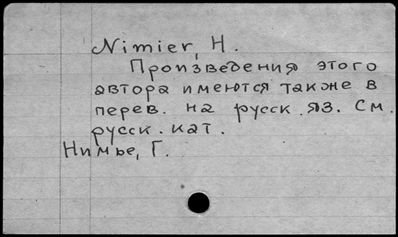 Nimier, H.
Произведения этого
автора имеются также в
перев. на русск. яз. См.
русск. кат.
Нимье, Г.